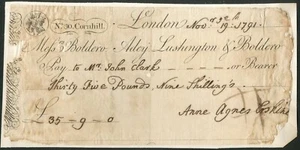 No. 30, Cornhill.
London Nov. 19th 1791
Messrs Boldero Adey Lushington & Boldero
Pay to Mr. John Clark or Bearer
Thirty Five Pounds, Nine Shillings
£35-9-0
Anne Agnes Erskine